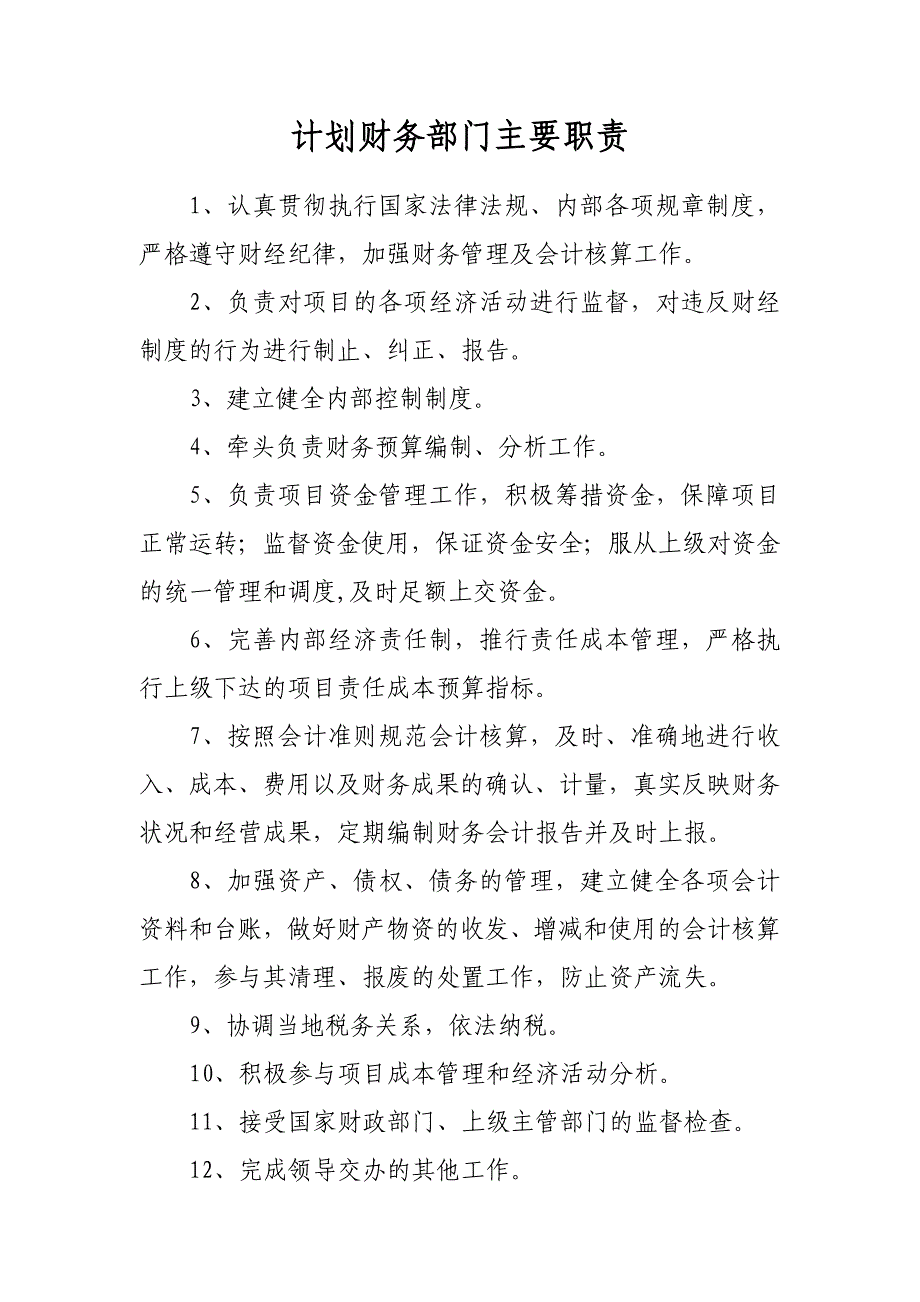 计划财务部门主要职责
1、认真贯彻执行国家法律法规、内部各项规章制度，
严格遵守财经纪律，加强财务管理及会计核算工作。
2、负责对项目的各项经济活动进行监督，对违反财经
制度的行为进行制止、纠正、报告。
3、建立健全内部控制制度。
4、牵头负责财务预算编制、分析工作。
5、负责项目资金管理工作，积极筹措资金，保障项目
正常运转；监督资金使用，保证资金安全；服从上级对资金
的统一管理和调度,及时足额上交资金。
6、完善内部经济责任制，推行责任成本管理，严格执
行上级下达的项目责任成本预算指标。
7、按照会计准则规范会计核算，及时、准确地进行收
入、成本、费用以及财务成果的确认、计量，真实反映财务
状况和经营成果，定期编制财务会计报告并及时上报。
8、加强资产、债权、债务的管理，建立健全各项会计
资料和台账，做好财产物资的收发、增减和使用的会计核算
工作，参与其清理、报废的处置工作，防止资产流失。
9、协调当地税务关系，依法纳税。
10、积极参与项目成本管理和经济活动分析。
11、接受国家财政部门、上级主管部门的监督检查。
12、完成领导交办的其他工作。